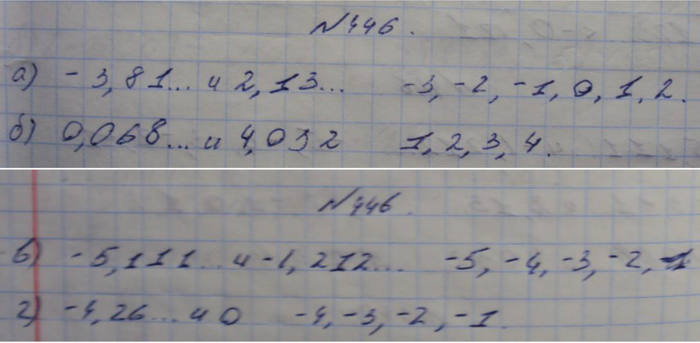 N446.
а) -3,81... и 2,13... -3, -2, -1, 0, 1, 2.
б) 0,068... и 4,032 1, 2, 3, 4.
N446.
в) -5,111... и -1,212... -5, -4, -3, -2, -1
г) -4,26... и 0 -4, -3, -2, -1.